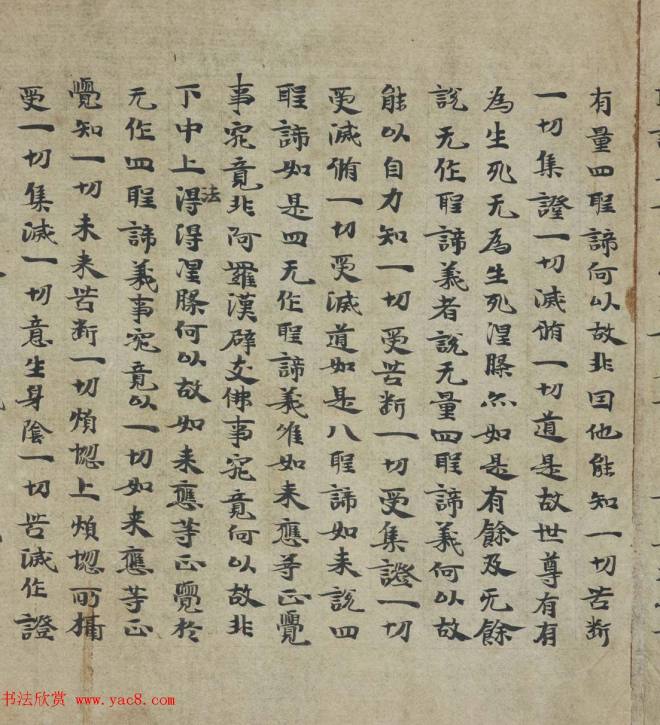 有量四聖諦何以故非因他能知一切苦斷
一切集證一切滅脩一切道是故世尊有有
為生死无為生死涅槃亦如是有餘及无餘
說无作聖諦義者說无量四聖諦義何以故
能以自力知一切受苦斷一切受集證一切
受滅脩一切受滅道如是八聖諦如来說四
聖諦如是四无作聖諦義唯如来應等正覺
事究竟非阿羅漢辟支佛事究竟何以故非
下中上得法得涅槃何以故如来應等正覺於
无作四聖諦義事究竟以一切如来應等正
覺知一切未来苦斷一切煩惱上煩惱所攝
受一切集滅一切意生身陰一切苦滅作證
书法欣赏 www.yac8.com